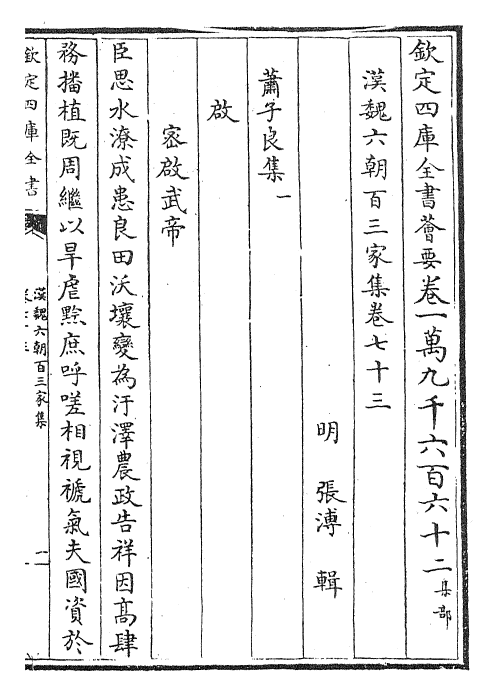 欽定四庫全書薈要卷一萬九千六百六十二集部
漢魏六朝百三家集卷七十三
明 張溥 輯
蕭子良集一
啟
密啟武帝
臣思水潦成患良田沃壤變為汙澤農政告祥因高肆
務播植既周繼以旱虐黔庶呼嗟相視褫氣夫國資於
欽定四庫全書
漢魏六朝百三家集